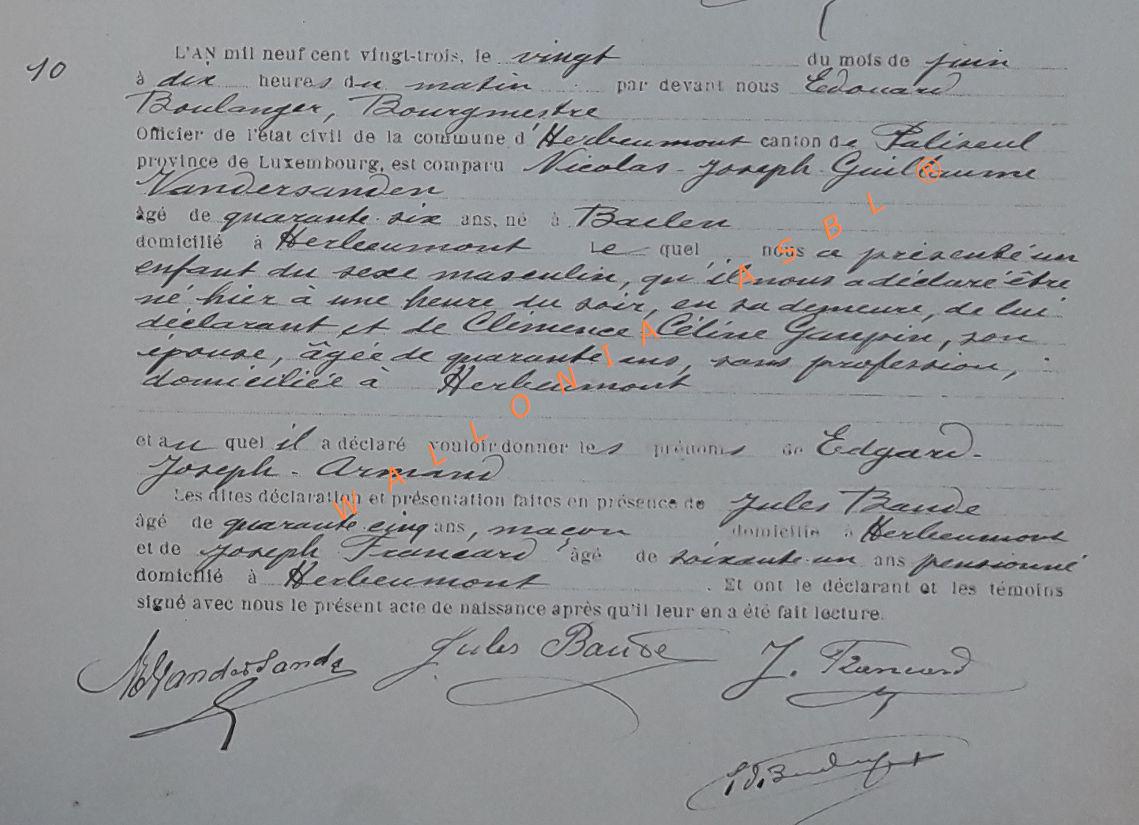 10
L'AN mil neuf cent vingt-trois, le vingt du mois de juin
à dix heures du matin par devant nous Edouard
Boulanger, Bourgmestre
Officier de l'état civil de la commune d'Herbeumont canton de Paliseul
province de Luxembourg, est comparu Nicolas-Joseph-Guillaume
Vandersanden
âgé de quarante-six ans, né à Baelen
domicilié à Herbeumont Le quel nous a présenté un
enfant du sexe masculin, qu'il nous a déclaré être
né hier à une heure du soir, en sa demeure, de lui
déclarant et de Clémence Céline son
épouse, âgée de quarante ans, sans profession,
domiciliée à Herbeumont
et au quel il a déclaré vouloir donner les prénoms de Edgard-
Joseph-Armand
Les dites déclaration et présentation faites en présence de Jules Baude
âgé de quarante-cinq ans, maçon domicilié à Herbeumont
et de Joseph Francard âgé de soixante-un ans pensionné
domicilié à Herbeumont. Et ont le déclarant et les témoins
signé avec nous le présent acte de naissance après qu'il leur en a été fait lecture.
Jules Baude J. Francard
WALLONIA ASBL ©